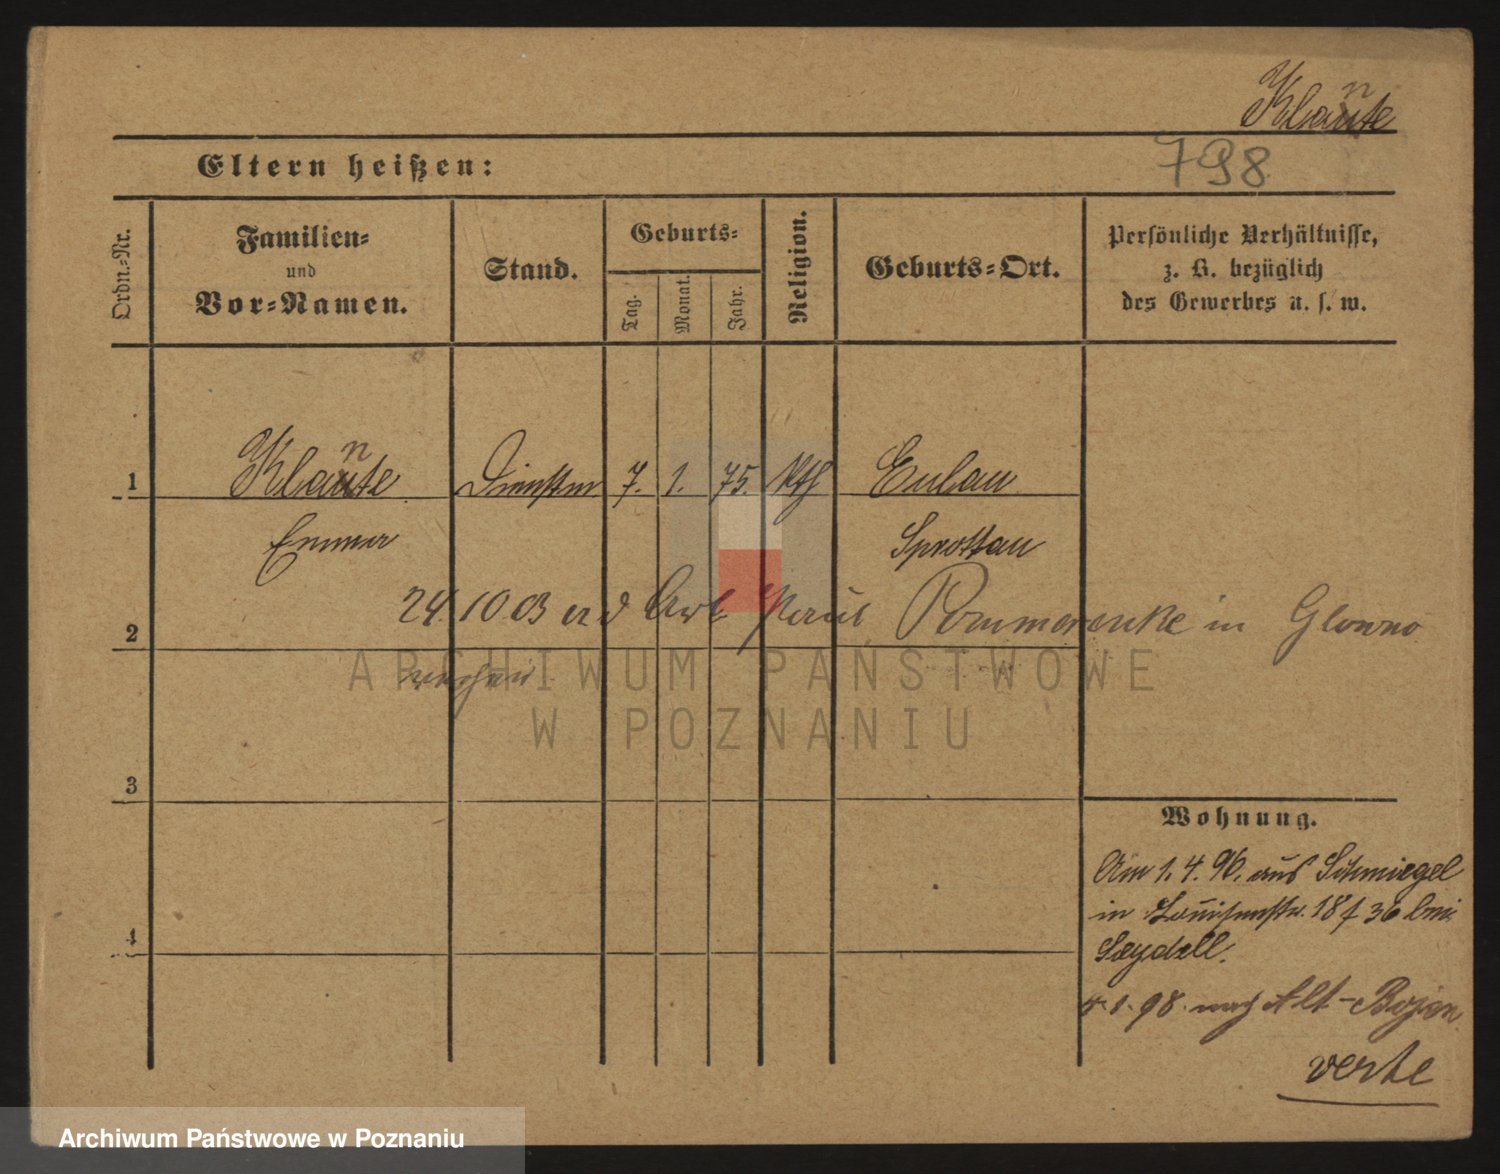 Klante
798
Eltern heißen:
Ordn.-Nr.
Familien-
und
Vor-Namen.
Stand.
Geburts-
Tag.
Monat.
Jahr.
Religion.
Geburts-Ort.
Persönliche Verhältnisse,
z. B. bezüglich
des Gewerbes u. s. w.
1
Klante
Emma
7. 1. 75.
Kth
Eulau
Sprottau
24.10.03 Arb Paul Pommerenke in Glowno
2
3
4
Wohnung.
Am 1. 4. 96. aus Schmiegel
in Louisenstr. 18 f 36 bei
Seydell.
4. 1. 98. nach Alt-Bojen
verte
ARCHIWUM PAŃSTWOWE
W POZNANIU
Archiwum Państwowe w Poznaniu